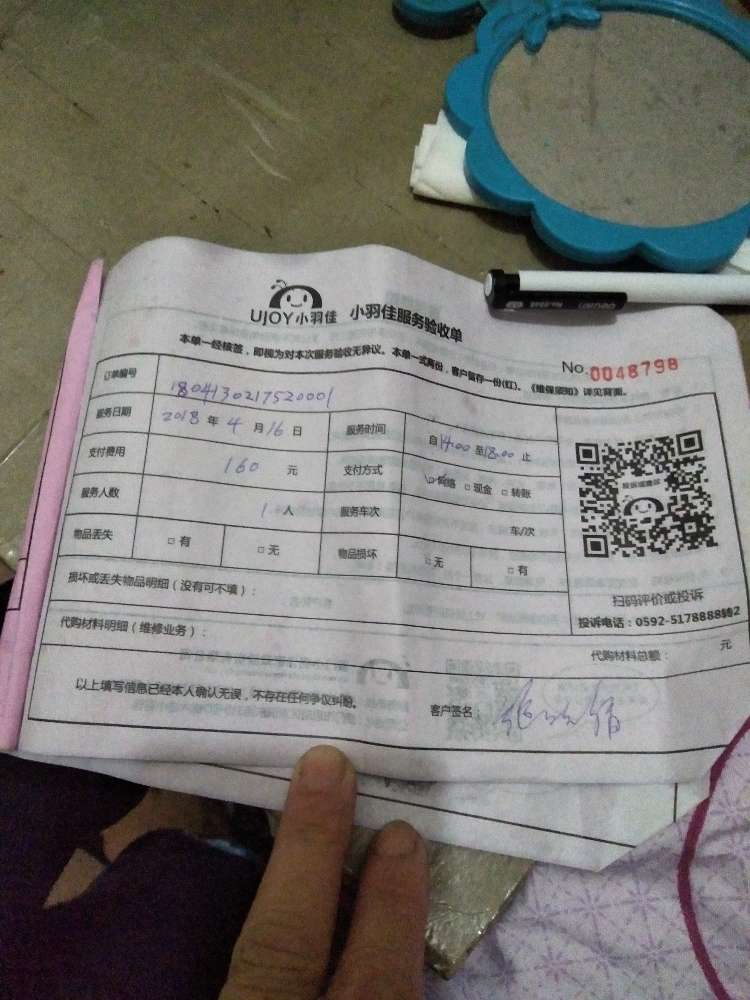 UJOY小羽佳 小羽佳服务验收单
本单一经核签，即视为对本次服务验收无异议。本单一式两份，客户留存一份(红)。《维保须知》详见背面。
No.0048798
订单编号 1804130217520001
服务日期 2018 年 4 月 16 日 服务时间 自 14:00 至 18:00 止
支付费用 160 元 支付方式 □网络 □现金 □转账
服务人数 1 人 服务车次 车/次
物品丢失 □有 □无 物品损坏 □无 □有
扫码评价或投诉
投诉电话：0592-5178888转2
损坏或丢失物品明细（没有可不填）：
代购材料明细（维修业务）： 代购材料总额： 元
以上填写信息已经本人确认无误，不存在任何争议纠纷。 客户签名：